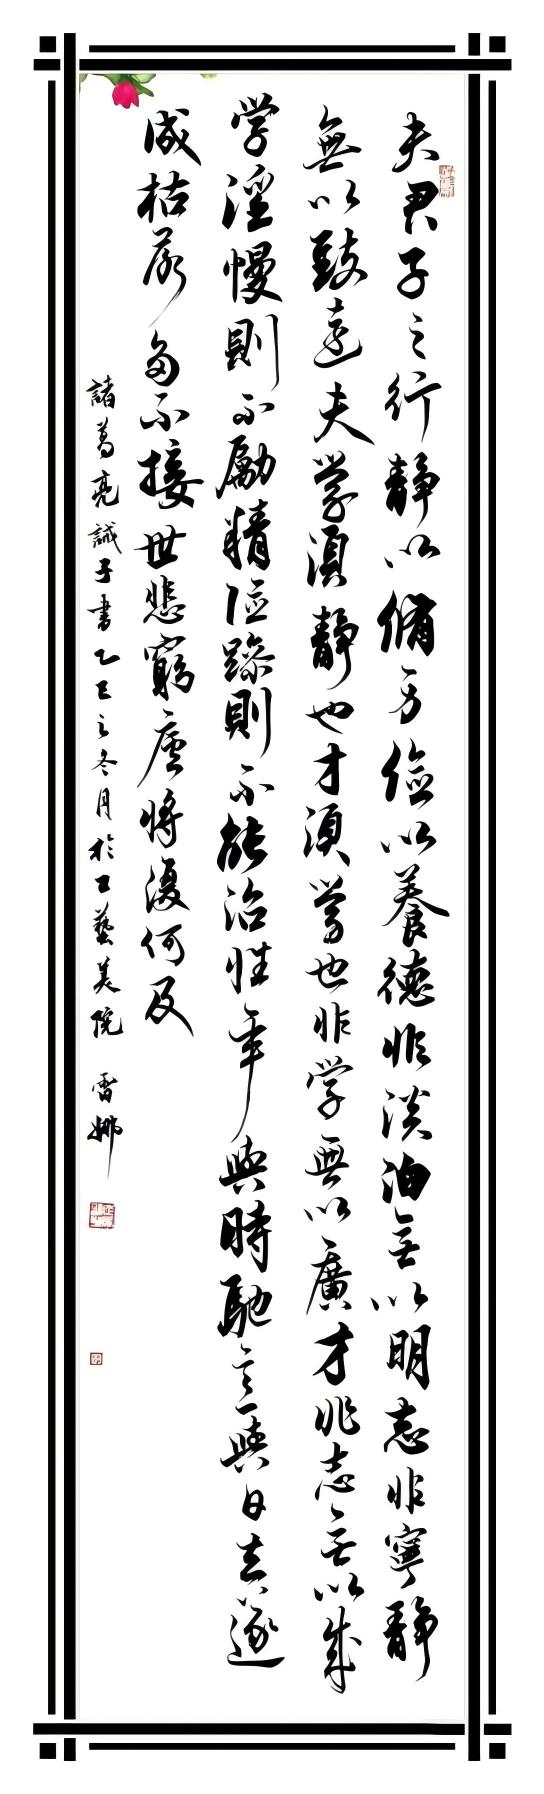 夫君子之行靜以脩身儉以養德非淡泊無以明志非寧靜
無以致遠夫学須靜也才須学也非学無以廣才非志無以成
学淫慢則不勵精險躁則不能治性年與時馳意與日去遂
成枯落多不接世悲窮廬將復何及
諸葛亮誡子書乙巳之冬月於工藝美院 雷娜